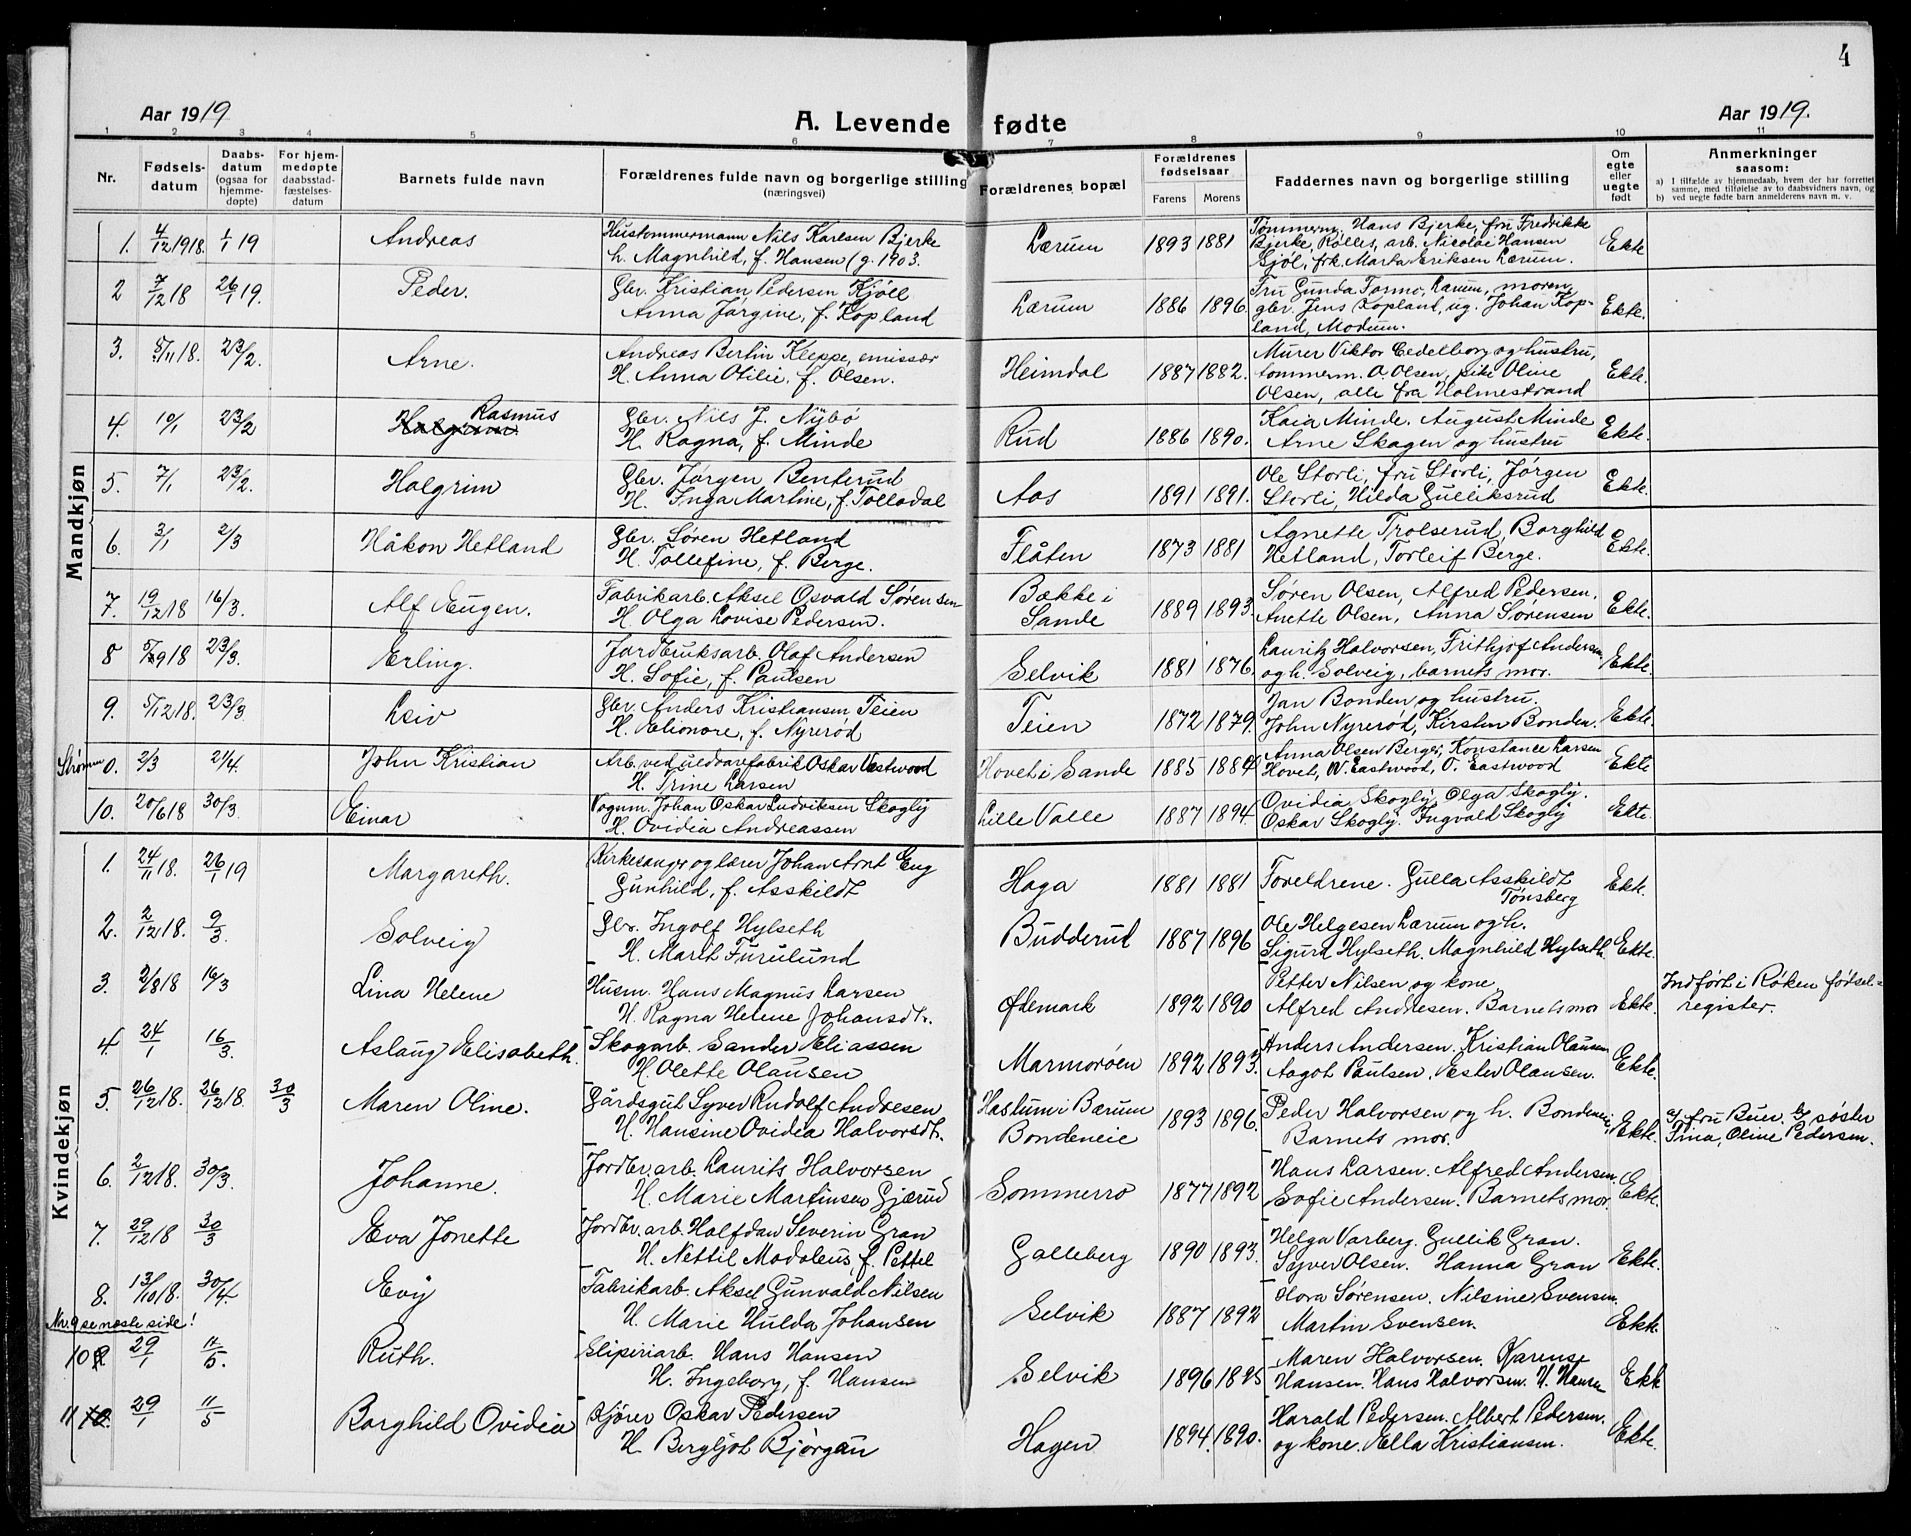 4
Aar 1919 A. Levende fødte Aar 1919.
1 2 3 4 5 6 7 8 9 10 11
Nr. Fødselsdatum Daabsdatum (ogsaa for hjemmedøpte) For hjemmedøpte daabsstadfæstelsesdatum Barnets fulde navn Forældrenes fulde navn og borgerlige stilling (næringsvei) Forældrenes bopæl Forældrenes fødselsaar Farens Morens Faddernes navn og borgerlige stilling Om egte eller uegte født Anmerkninger saasom:
a) I tilfælde av hjemmedaab, hvem der har forrettet samme, med tilføielse av to daabsvidners navn, og
b) ved uegte fødte barn anmelderens navn m. v.
Mandkjøn
1. 4/12 1918. 1/1 19 Andreas Hustømmermann Nils Karlsen Bjerke Lærum 1893 1881 Tømmerm. Hans Bjerke, fru Fredrikke Ekte
h. Magnhild, f. Hansen (g. 1903. Bjerke, Rølles, arb. Nicolai Hansen
Gjøl, frk. Marta Eriksen Lærum.
2 7/12 18 26/1 19. Peder. Gbr. Kristian Pedersen Kjøll Lærum 1886 1896. Fru Gunda Tormo, Lærum, moren, Ekte.
Anna Jørgine, f. Kopland gbr. Jens Kopland, ug. Johan Kopland, Modum.
3. 5/11 18. 23/2. Arne. Andreas Bertin Kleppe, emissær Heimdal 1887 1882. Murer Viktor Cedelborg og hustru, Ekte.
H. Anna Otilie, f. Olsen. tømmerm. O. Olsen, pike Oline
Olsen, alle fra Holmestrand
4. 10/1 23/2 Halgrim Rasmus Gbr. Nils J. Nybø Rud 1886 1890. Kaia Minde. August Minde Ekte.
H. Ragna, f. Minde Arne Skagen og hustru
5. 7/1 23/2. Halgrim Gbr. Jørgen Benterud Aos 1891 1891. Ole Storli, fru Storli, Jørgen Ekte.
H. Inga Martine, f. Tollodal Storli, Hilda Gulliksrud
6. 3/1 2/3 Håkon Hetland Gbr. Søren Hetland Flåten 1873 1881 Agnette Trolserud, Borghild Ekte.
H. Tollefine, f. Berge. Hetland, Torleif Berge.
7. 19/12 18 16/3. Alf Eugen. Fabrikarb. Aksel Osvald Sørensen Bække i Sande 1889 1893. Søren Olsen, Alfred Pedersen, Ekte.
H. Olga Lovise Pedersen. Anette Olsen, Anna Sørensen
8 5/9 18 23/3. Erling. Jordbruksarb. Olaf Andersen Selvik 1881 1876. Lauritz Halvorsen, Frithjof Andersen Ekte.
H. Sofie, f. Paulsen og h. Solveig, barnets mor.
9. 5/12 18. 23/3 Leiv Gbr. Anders Kristiansen Teien Teien 1872 1879. Jan Bonden og hustru. Ekte.
H. Elionore, f. Nyrerød John Nyrerød, Kirsten Bonden.
Strømm 0. 2/3 21/4. John Kristian Arb. ved uldvarefabrik Oskar Vestwood Hovet i Sande 1885 1884 Anna Olsen Berger, Konstance Larsen Ekte
H. Trine Larsen Hovet, W. Eastwood, O. Eastwood
10. 20/6 18 30/3. Einar Vognm. Johan Oskar Ludviksen Skogly Lille Valle 1887 1894. Ovidia Skogly, Olga Skogly. Ekte.
H. Ovidia Andreassen Oskar Skogly. Ingvald Skogly
Kvindekjøn
1. 24/11 18. 26/1 19 Margareth. Kirkesanger og lærer Johan Arnt Eng Haga 1881 1881 Foreldrene. Gulla Asskildt Ekte.
Gunhild, f. Asskildt Tønsberg
2. 2/12 18. 9/3. Solveig Gbr. Ingolf Hylseth Budderud 1887 1896 Ole Helgesen Lærum og h. Ekte.
H. Marit Furulund Sigurd Hylseth. Magnhild Hylseth.
3. 2/8 18 16/3 Lina Helene Husm. Hans Magnus Larsen Ødemark 1892 1890 Petter Nilsen og kone Ekte. Indført i Røken fødsel-
H. Ragna Helene Johansdt. Alfred Andresen. Barnets mor register.
4. 24/1 16/3. Aslaug Elisabeth. Skogarb. Sander Eliassen Marmorøen 1892 1893. Anders Andersen. Kristian Olausen Ekte.
H. Olette Olausen Aagot Paulsen. Ester Olausen.
5. 26/12 18. 26/12 18. 30/3 Maren Oline. Gårdsgut Syver Rudolf Andresen Haslum i Bærum 1893 1896. Peder Halvorsen og h. Bondeneie, Ekte. a/ fru Buer. b/ søster
H. Hansine Ovidea Halvorsdt. Bondeneie Barnets mor. Tina, Oline Pedersen.
6. 2/12 18. 30/3. Johanne. Jordbr. arb. Laurits Halvorsen Sommerro 1877 1892 Hans Larsen. Alfred Andersen. Ekte.
H. Marie Martinsen Gjærud Sofie Andersen. Barnets mor.
7. 29/12 18 30/3 Eva Jonette Jordbr. arb. Halfdan Severin Gran Galleberg 1890 1893. Helga Varberg. Gullik Gran. Ekte.
H. Nettil Madaleus, f. Pettel Syver Olsen. Hanna Gran
8. 13/10 18. 30/4. Evy Fabrikarb. Aksel Gunvald Nilsen Selvik 1887 1892 Hora Sørensen. Nilsine Svensen. Ekte.
H. Marie Hulda Johansen Martin Svensen.
Nr. 9 se næste side!
10 29/1 11/5. Ruth. Sliperiarb. Hans Hansen Selvik 1896 1895 Maren Halvorsen. Karense Ekte
H. Ingeborg, f. Hansen Hansen. Hans Halvorsen. H. Hansen
11 29/1 11/5 Borghild Ovidia Kjører Oskar Pedersen Hagen 1894. 1890. Harald Pedersen. Albert Pedersen. Ekte.
H. Bergljot Bjørgan og kone. Ella Kristiansen.